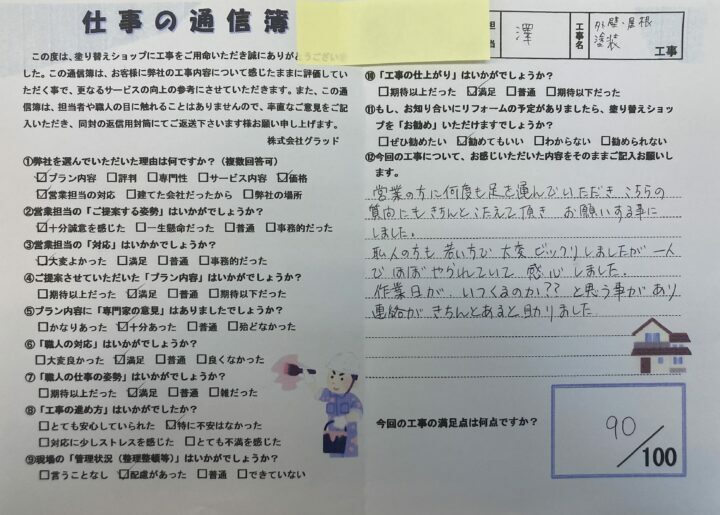 仕事の通信簿
この度は、塗り替えショップに工事をご用命いただき誠にありがとうございま
した。この通信簿は、お客様に弊社の工事内容について感じたままに評価してい
ただく事で、更なるサービスの向上の参考にさせていただきます。また、この通
信簿は、担当者や職人の目に触れることはありませんので、率直なご意見をご記
入いただき、同封の返信用封筒にてご返送下さいます様お願い申し上げます。
株式会社グラッド
①弊社を選んでいただいた理由は何ですか？（複数回答可）
☑プラン内容 □評判 □専門性 □サービス内容 ☑価格
☑営業担当の対応 □建てた会社だったから □弊社の場所
②営業担当の「ご提案する姿勢」はいかがでしょうか？
☑十分誠意を感じた □一生懸命だった □普通 □事務的だった
③営業担当の「対応」はいかかでしょうか？
☑大変よかった □満足 □普通 □事務的だった
④ご提案させていただいた「プラン内容」はいかがでしょうか？
□期待以上だった ☑満足 □普通 □期待以下だった
⑤プラン内容に「専門家の意見」はありましたでしょうか？
□かなりあった ☑十分あった □普通 □殆どなかった
⑥「職人の対応」はいかがでしょうか？
□大変良かった ☑満足 □普通 □良くなかった
⑦「職人の仕事の姿勢」はいかがでしょうか？
□期待以上だった ☑満足 □普通 □雑だった
⑧「工事の進め方」はいかがでしたか？
□とても安心していられた ☑特に不安はなかった
□対応に少しストレスを感じた □とても不満を感じた
⑨現場の「管理状況（整理整頓等）」はいかがでしょうか？
□言うことなし ☑配慮があった □普通 □できていない
担当 澤 工事名 外壁・屋根
塗装 工事
⑩「工事の仕上がり」はいかがでしょうか？
□期待以上だった ☑満足 □普通 □期待以下だった
⑪もし、お知り合いにリフォームの予定がありましたら、塗り替えショッ
プを「お勧め」いただけますでしょうか？
□ぜひ勧めたい ☑勧めてもいい □わからない □勧められない
⑫今回の工事について、お感じいただいた内容をそのままご記入お願いし
ます。
営業の方に何度も足を運んでいただき こちらの
質問にもきちんとこたえて頂き お願いする事に
しました。
職人の方も 若い方で 大変 ビックリしましたが 一人
で ほぼやられていて 感心しました。
作業日が いつくるのか?? と思う事があり
連絡が きちんとあると助りました
今回の工事の満足点は何点ですか？
90/100